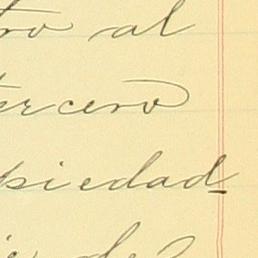 tro al
tercero
piedad
de